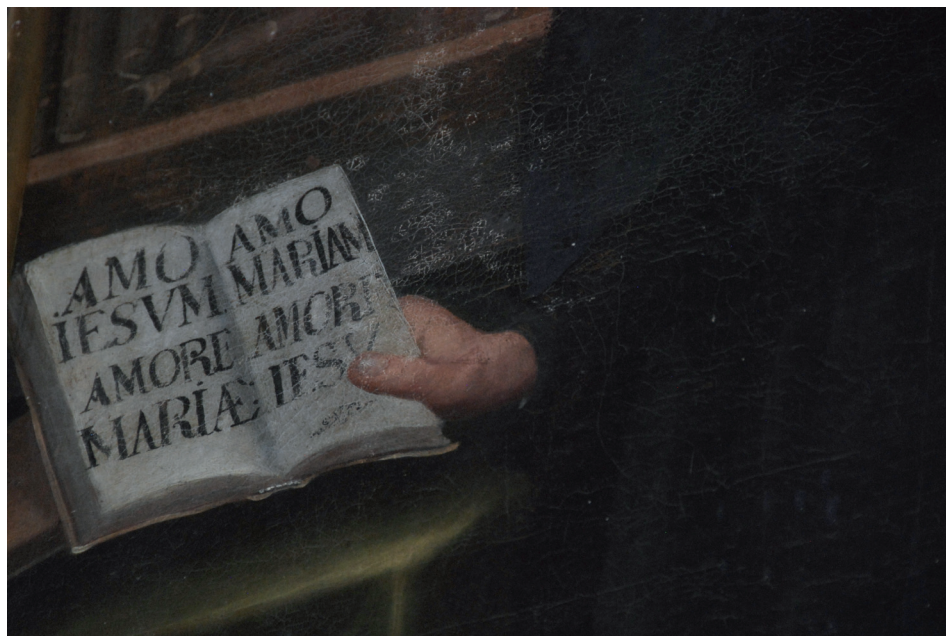 AMO
IESVM
AMORE
MARIÆ
AMO
MARIAM
AMORE
IESV